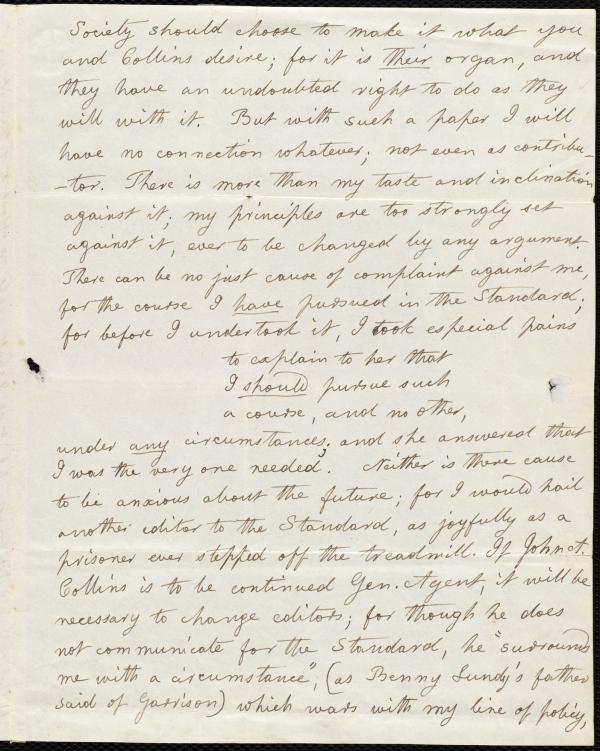 Society should choose to make it what you
and Collins desire; for it is their organ, and
they have an undoubted right to do as they
will with it. But with such a paper I will
have no connection whatever; not even as contribu-
-tor. There is more than my taste and inclination
against it; my principles are too strongly set
against it, ever to be changed by any argument.
There can be no just cause of complaint against me,
for the course I have pursued in the Standard;
for before I undertook it, I took especial pains
to explain to her that
I should pursue such
a course, and no other,
under any circumstances; and she answered that
I was the very one needed. Neither is there cause
to be anxious about the future; for I would hail
another editor to the Standard, as joyfully as a
prisoner ever stepped off the treadmill. If John A.
Collins is to be continued Gen. Agent, it will be
necessary to change editors; for though he does
not communicate for the Standard, he "surrounds
me with a circumstance", (as Benny Lundy's father
said of Garrison) which wars with my line of policy,